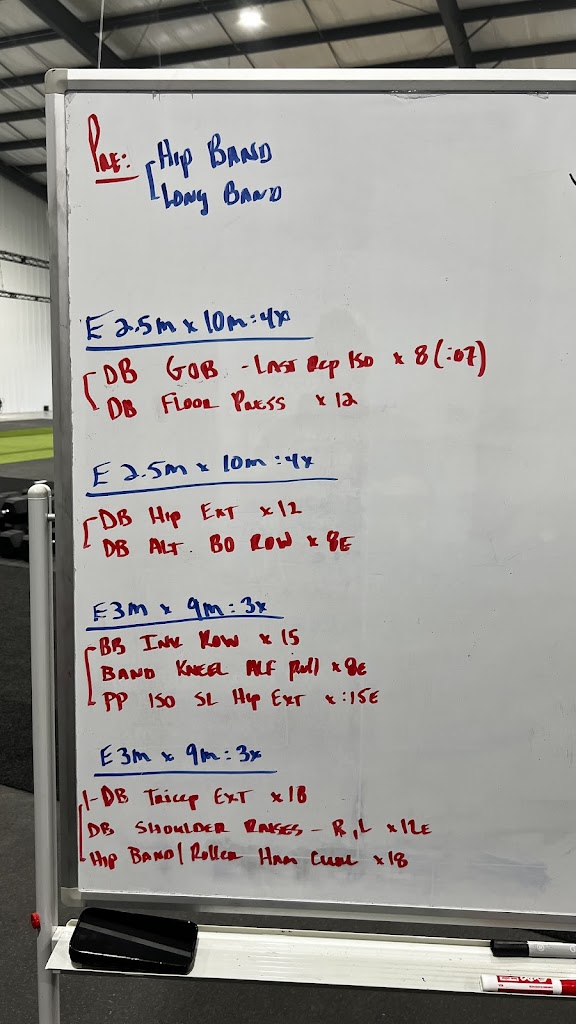 PRE: HIP BAND
LONG BAND
E 2.5m x 10m : 4x
DB GOB - LAST REP ISO x 8 (:07)
DB FLOOR PRESS x 12
E 2.5m x 10m : 4x
DB HIP EXT x 12
DB ALT. BO ROW x 8E
E3m x 9m : 3x
BB INV ROW x 15
BAND KNEEL ALT Pull x 8E
PP ISO SL HIP EXT x :15E
E3m x 9m : 3x
1-DB TRICEP EXT x 18
DB SHOULDER RAISES - R, L x 12E
HIP BAND/ROLLER HAM CURL x 18